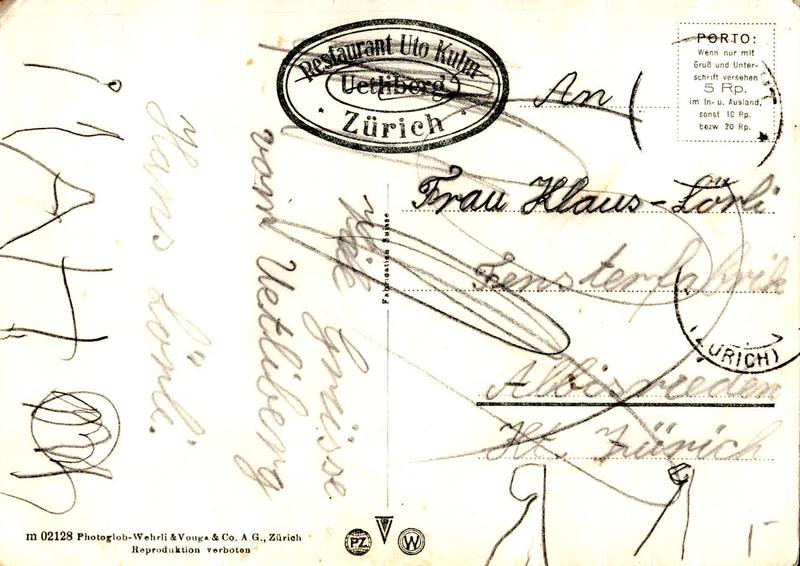 Restaurant Uto Kulm
Uetliberg
Zürich
PORTO:
Wenn nur mit
Gruß und Unter-
schrift versehen
5 Rp.
im In- u. Ausland,
sonst 10 Rp.
bezw 20 Rp.
An
Frau Klaus-Lörli
Fensterfabrik
Albisrieden
Kt. Zürich
(ZÜRICH)
Fabrication Suisse
Viele Grüsse
vom Uetliberg
Hans Lörli.
m 02128 Photoglob-Wehrli & Vouga & Co. A.G., Zürich
Reproduktion verboten
PZ
W